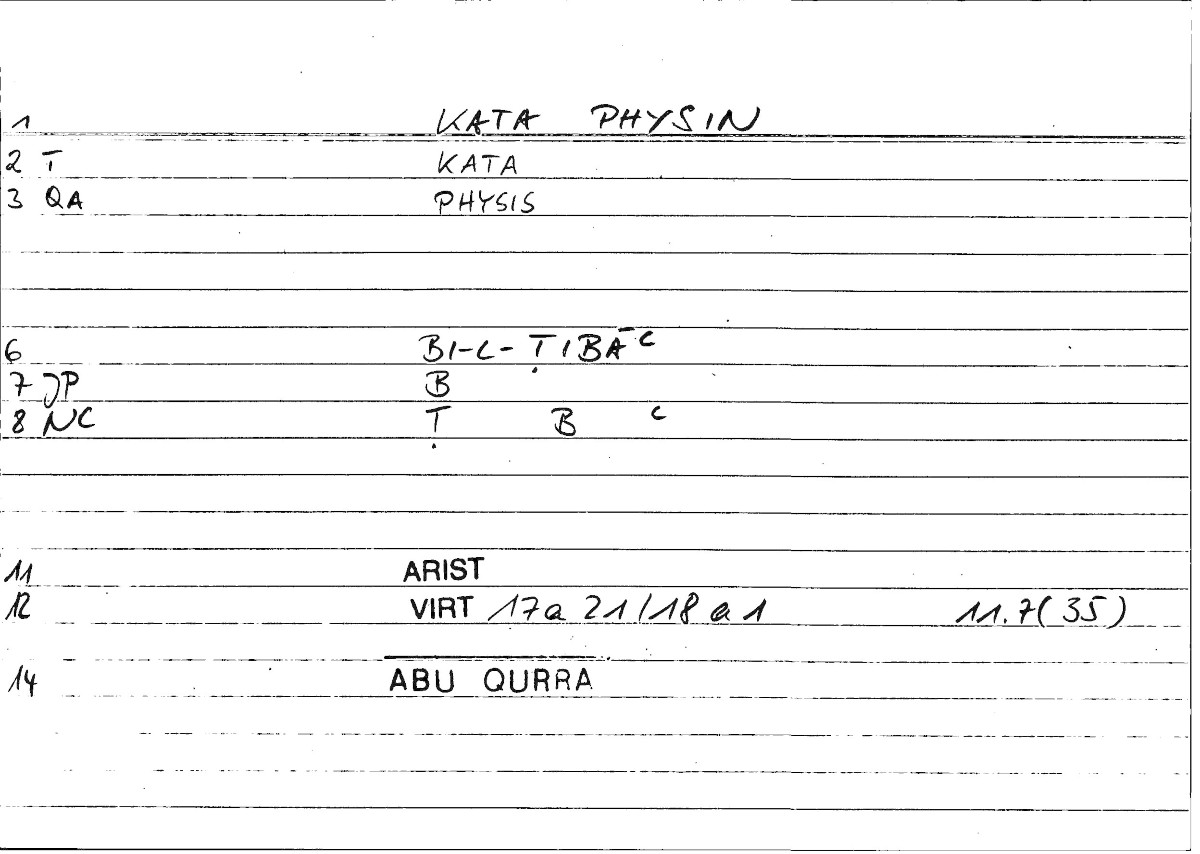 1 KATA PHYSIN
2 T KATA
3 QA PHYSIS
6 BI-L-ṬIBĀC
7 JP B
8 NC Ṭ B C
11 ARIST
12 VIRT 17a 21/18 a 1 11.7(35)
14 ABU QURRA